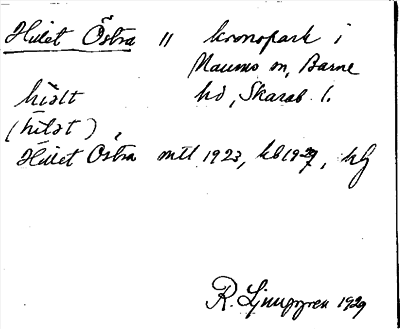 Hulet Östra " kronopark i
Naums sn, Barne
hd, Skarab. l.
Hulet Östra mtl 1923, kb 1929, hfj
R. Ljunggren 1929